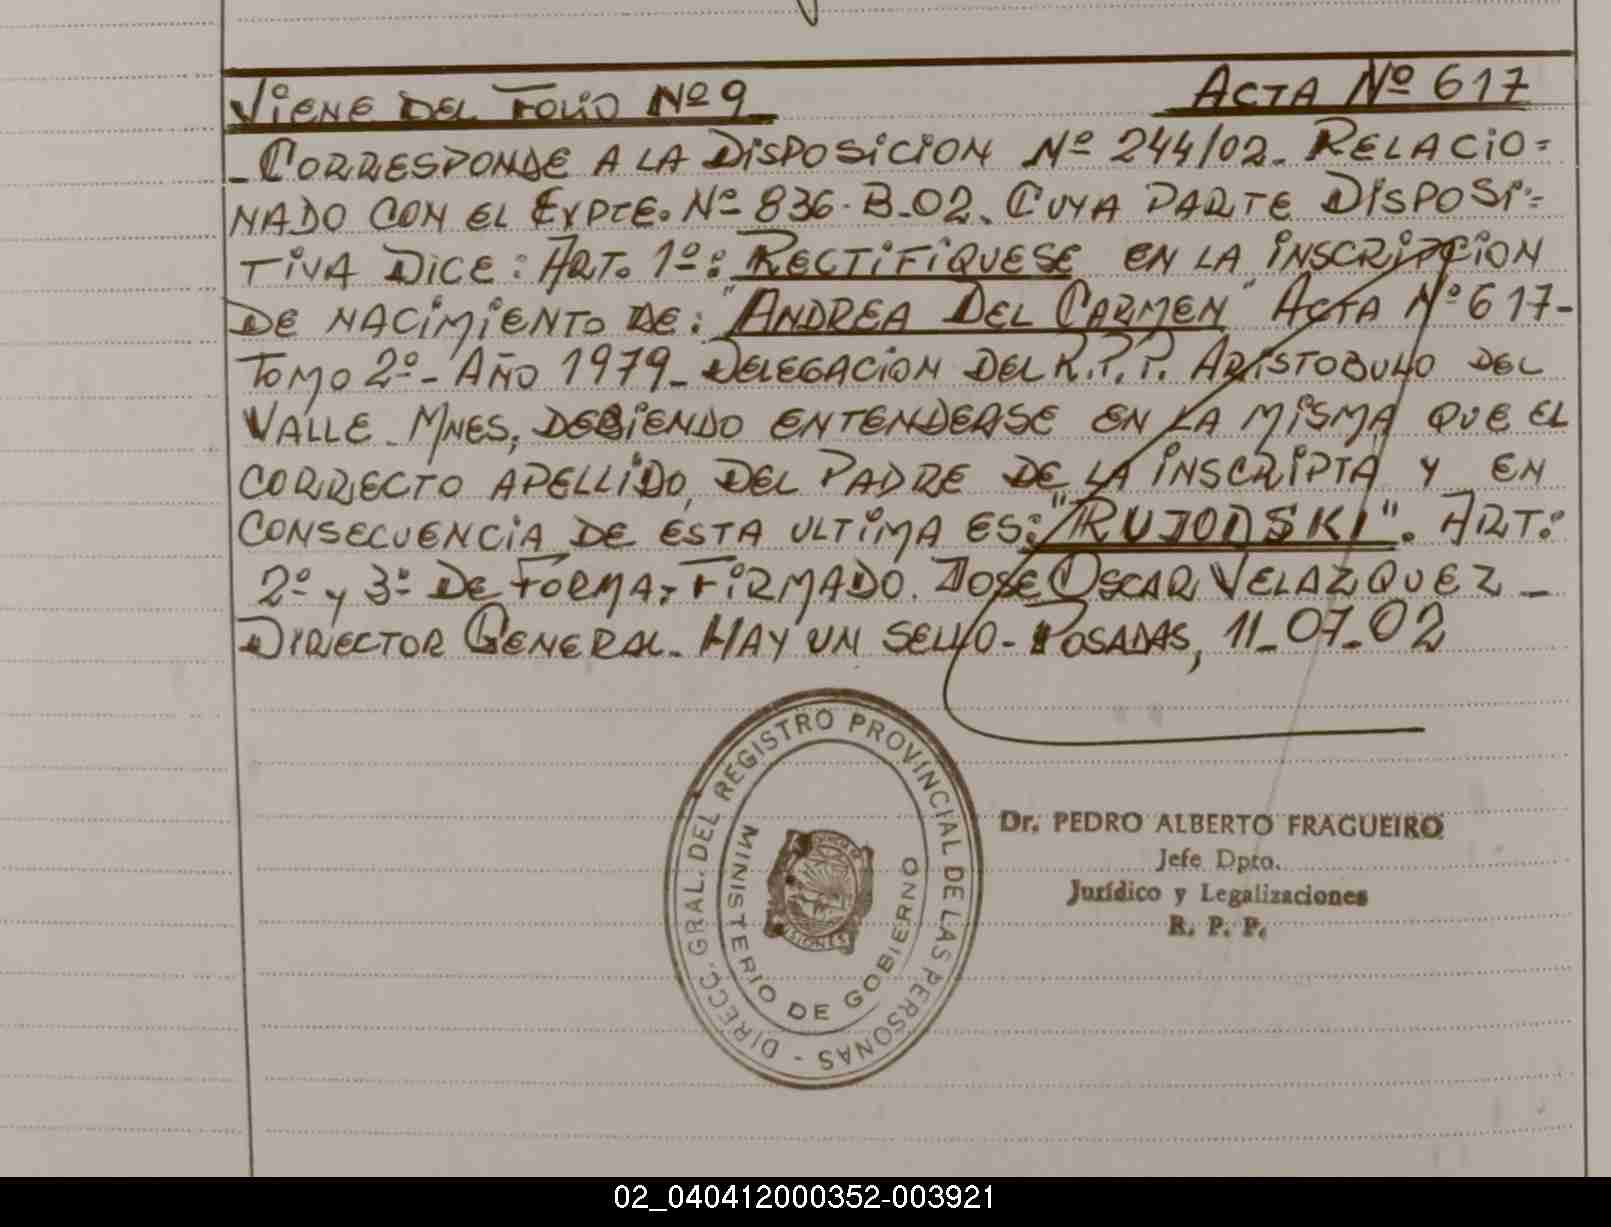 VIENE DEL FOLIO Nº 9 ACTA Nº 617
- CORRESPONDE A LA DISPOSICION Nº 244/02. RELACIO=
NADO CON EL EXPTE. Nº 836-B-02. CUYA PARTE DISPOSI=
TIVA DICE: ART. 1º: RECTIFIQUESE EN LA INSCRIPCION
DE NACIMIENTO DE: "ANDREA DEL CARMEN" ACTA Nº 617-
TOMO 2º- AÑO 1979- DELEGACION DEL R.P.P. ARISTOBULO DEL
VALLE- MNES, DEBIENDO ENTENDERSE EN LA MISMA QUE EL
CORRECTO APELLIDO DEL PADRE DE LA INSCRIPTA Y EN
CONSECUENCIA DE ESTA ULTIMA ES: "RUJODSKI". ART:
2º y 3º DE FORMA, FIRMADO. JOSE OSCAR VELAZQUEZ -
DIRECTOR GENERAL. HAY UN SELLO- POSADAS, 11-07-02
DIRECC. GRAL. DEL REGISTRO PROVINCIAL DE LAS PERSONAS -
MINISTERIO DE GOBIERNO
MISIONES
Dr. PEDRO ALBERTO FRAGUEIRO
Jefe Dpto.
Jurídico y Legalizaciones
R. P. P.
02_040412000352-003921